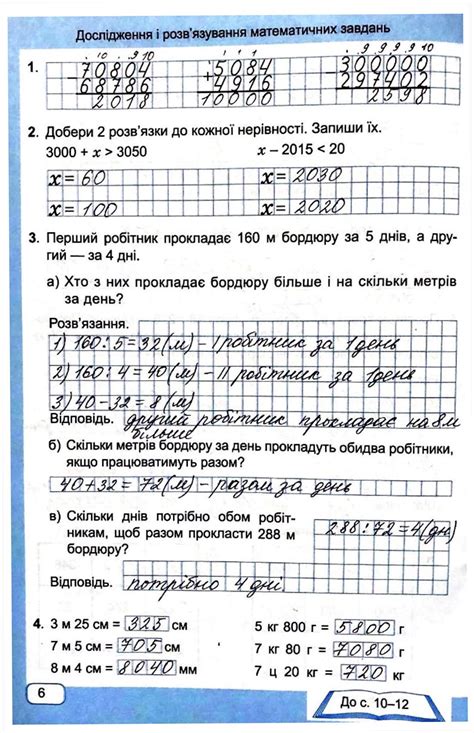 Дослідження і розв'язування математичних завдань
1.
. . . 9 10
70804
- 68786
2018
1 1 1
5084
+ 4916
10000
. 9 9 9 9 10
300000
- 297402
2598
2. Добери 2 розв'язки до кожної нерівності. Запиши їх.
3000 + x > 3050    x – 2015 < 20
x = 60    x = 2030
x = 100    x = 2020
3. Перший робітник прокладає 160 м бордюру за 5 днів, а дру-
гий — за 4 дні.
а) Хто з них прокладає бордюру більше і на скільки метрів
за день?
Розв'язання.
1) 160 : 5 = 32 (м) – I робітник за 1 день
2) 160 : 4 = 40 (м) – II робітник за 1 день
3) 40 – 32 = 8 (м)
Відповідь. другий робітник прокладає на 8 м
більше
б) Скільки метрів бордюру за день прокладуть обидва робітники,
якщо працюватимуть разом?
40 + 32 = 72 (м) – разом за день
в) Скільки днів потрібно обом робіт-
никам, щоб разом прокласти 288 м
бордюру?
288 : 72 = 4 (дн)
Відповідь. потрібно 4 дні
4. 3 м 25 см = 325 см    5 кг 800 г = 5800 г
7 м 5 см = 705 см    7 кг 80 г = 7080 г
8 м 4 см = 8040 мм    7 ц 20 кг = 720 кг
6    До с. 10–12